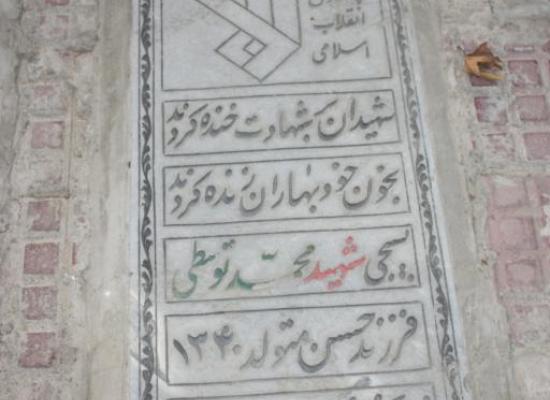 انقلاب
اسلامی
شهیدان بشهادت خنده کردند
بخون خود بهاران زنده کردند
بسیجی شهید محمد توسطی
فرزند حسن متولد ۱۳۴۰